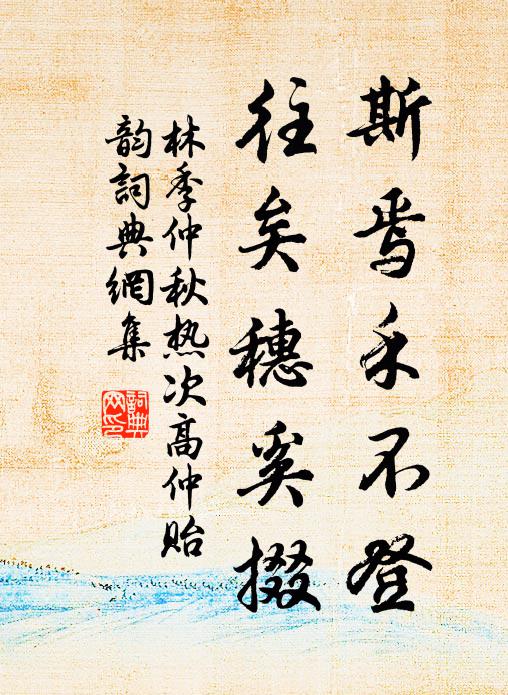 斯焉禾不登
往矣穗奚掇
林季仲秋热次高仲贻
韵詞典網集
詞典网印